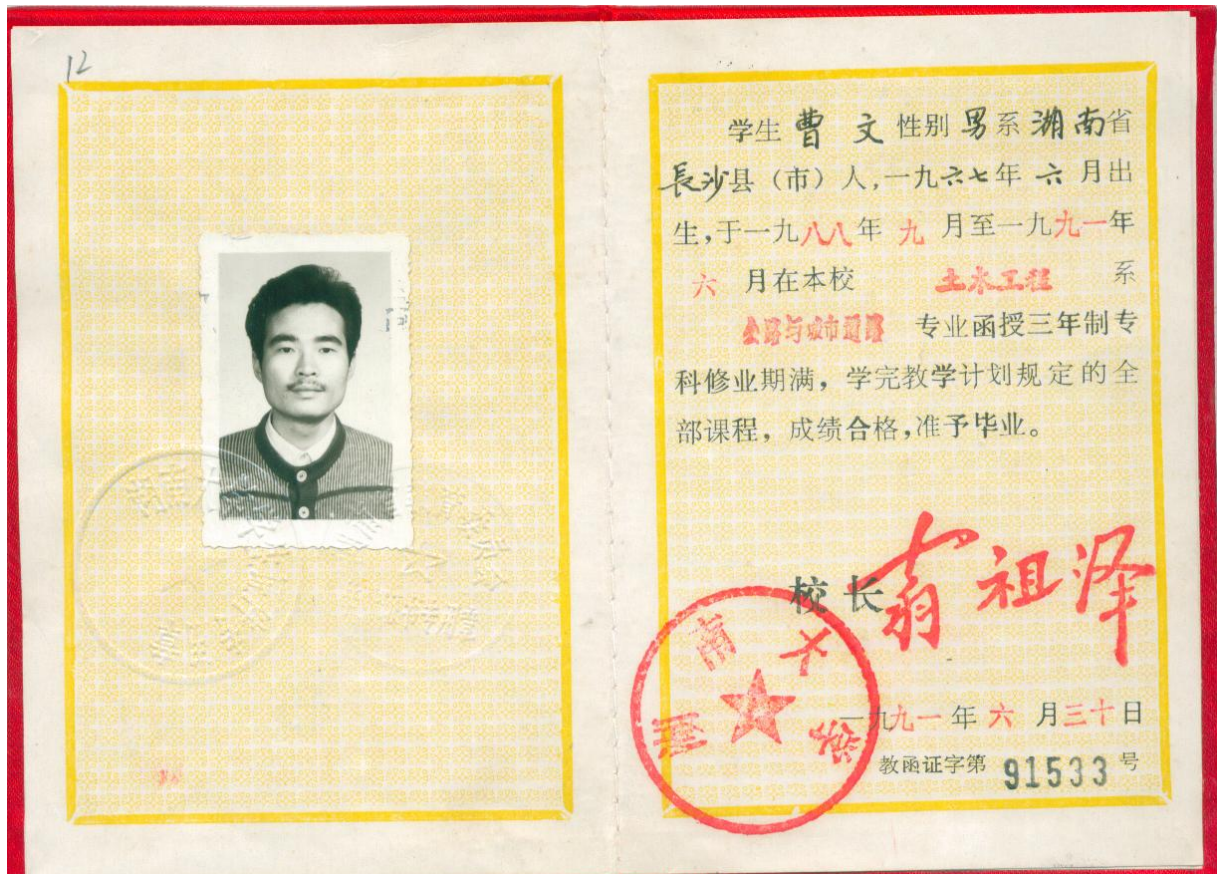 12
学生 曹 文 性别 男 系 湖南省
長沙县（市）人,一九六七年 六 月出
生,于一九八八年 九 月至一九九一年
六 月在本校 土木工程 系
公路与城市道路 专业函授三年制专
科修业期满，学完教学计划规定的全
部课程，成绩合格,准予毕业。
校长 翁祖泽
湖南大学
一九九一年 六 月三十日
教函证字第 91533 号